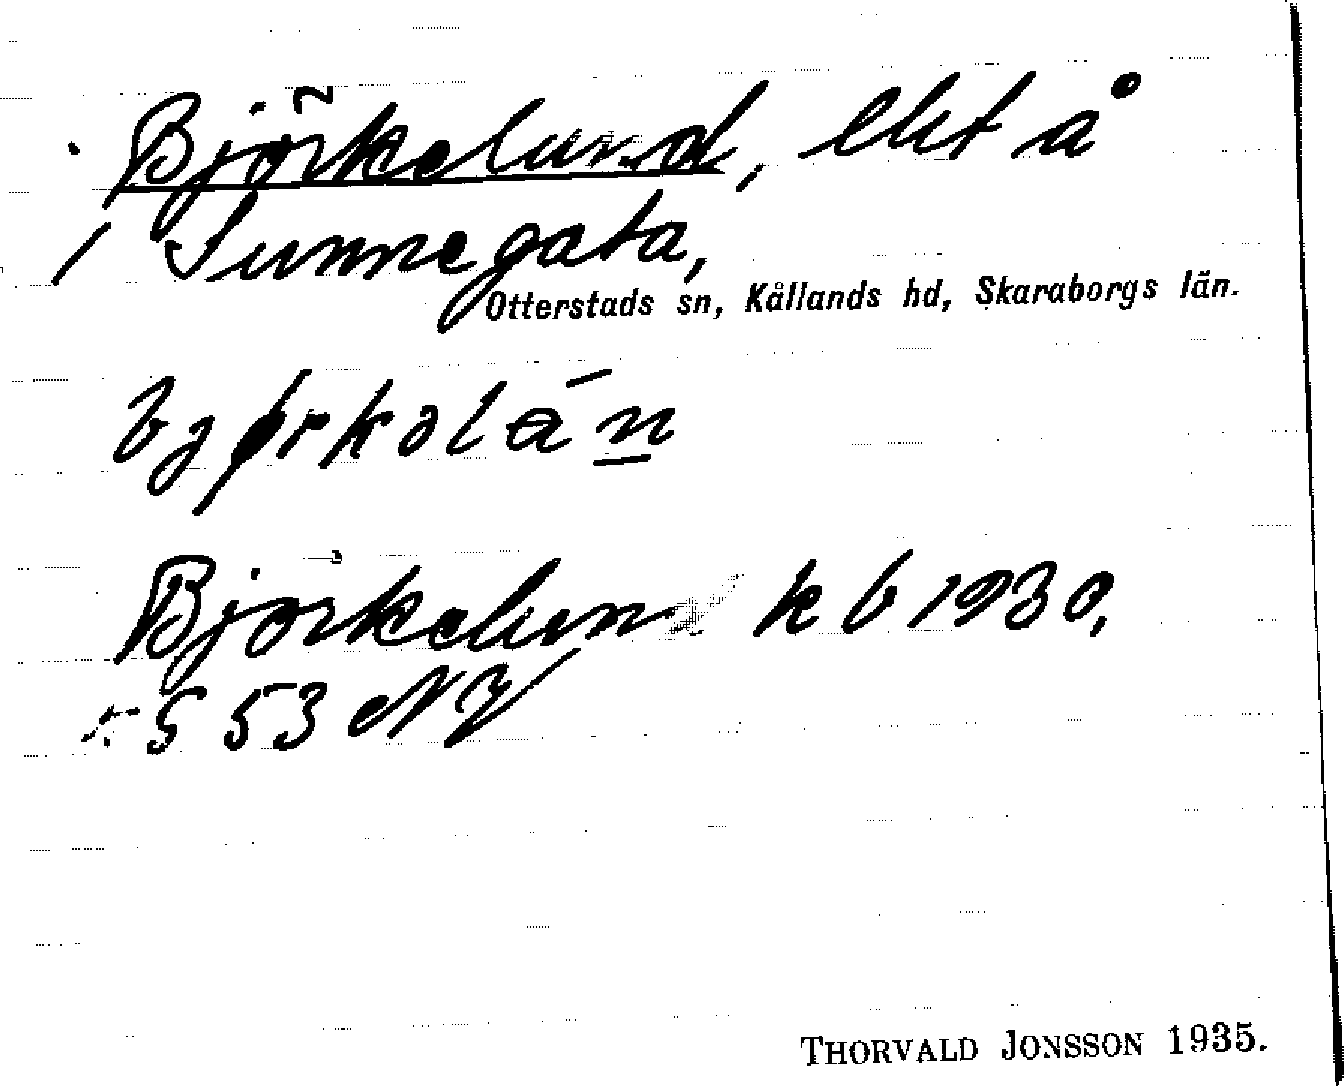 Björkelund, lht å
1 Sunnegata,
Otterstads sn, Kållands hd, Skaraborgs län.
bjørkəlán
Björkelun kb 1930,
s 53 NV
THORVALD JONSSON 1935.